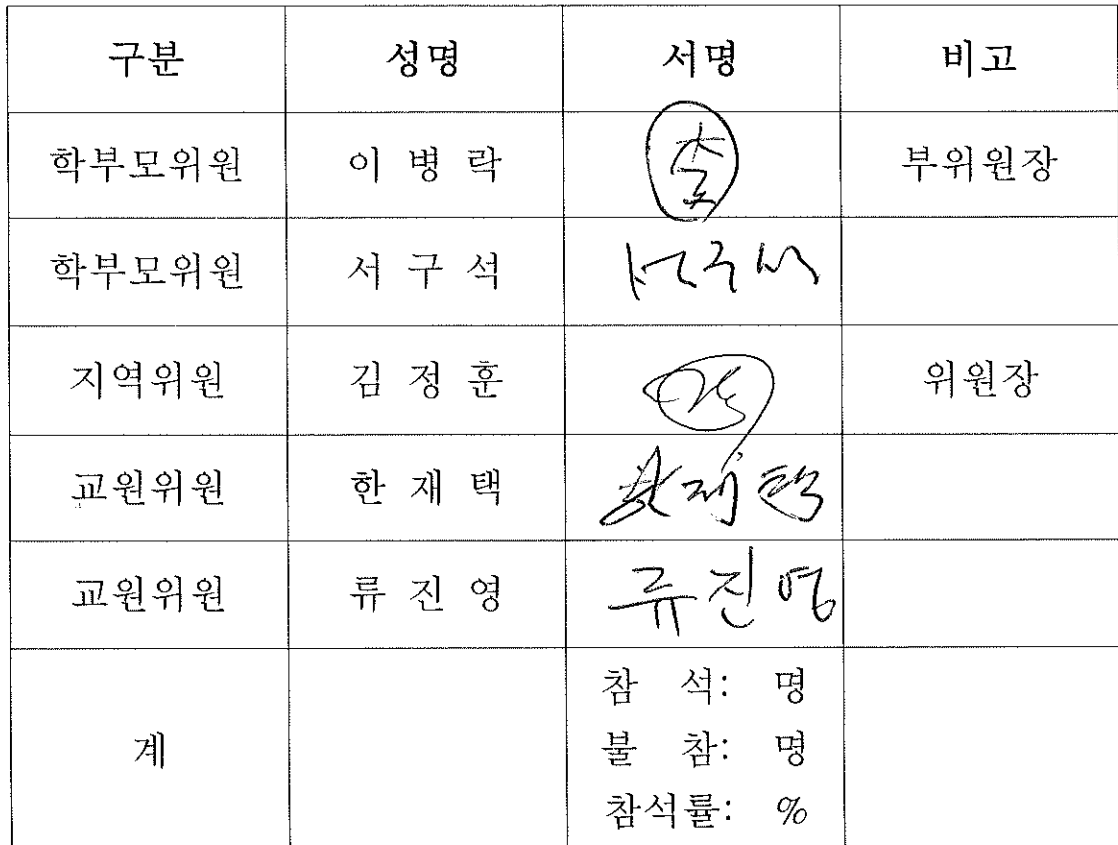 구분 성명 서명 비고
학부모위원 이 병 락 부위원장
학부모위원 서 구 석 서구석
지역위원 김 정 훈 위원장
교원위원 한 재 택 한재택
교원위원 류 진 영 류진영
계 참 석: 명
불 참: 명
참석률: %